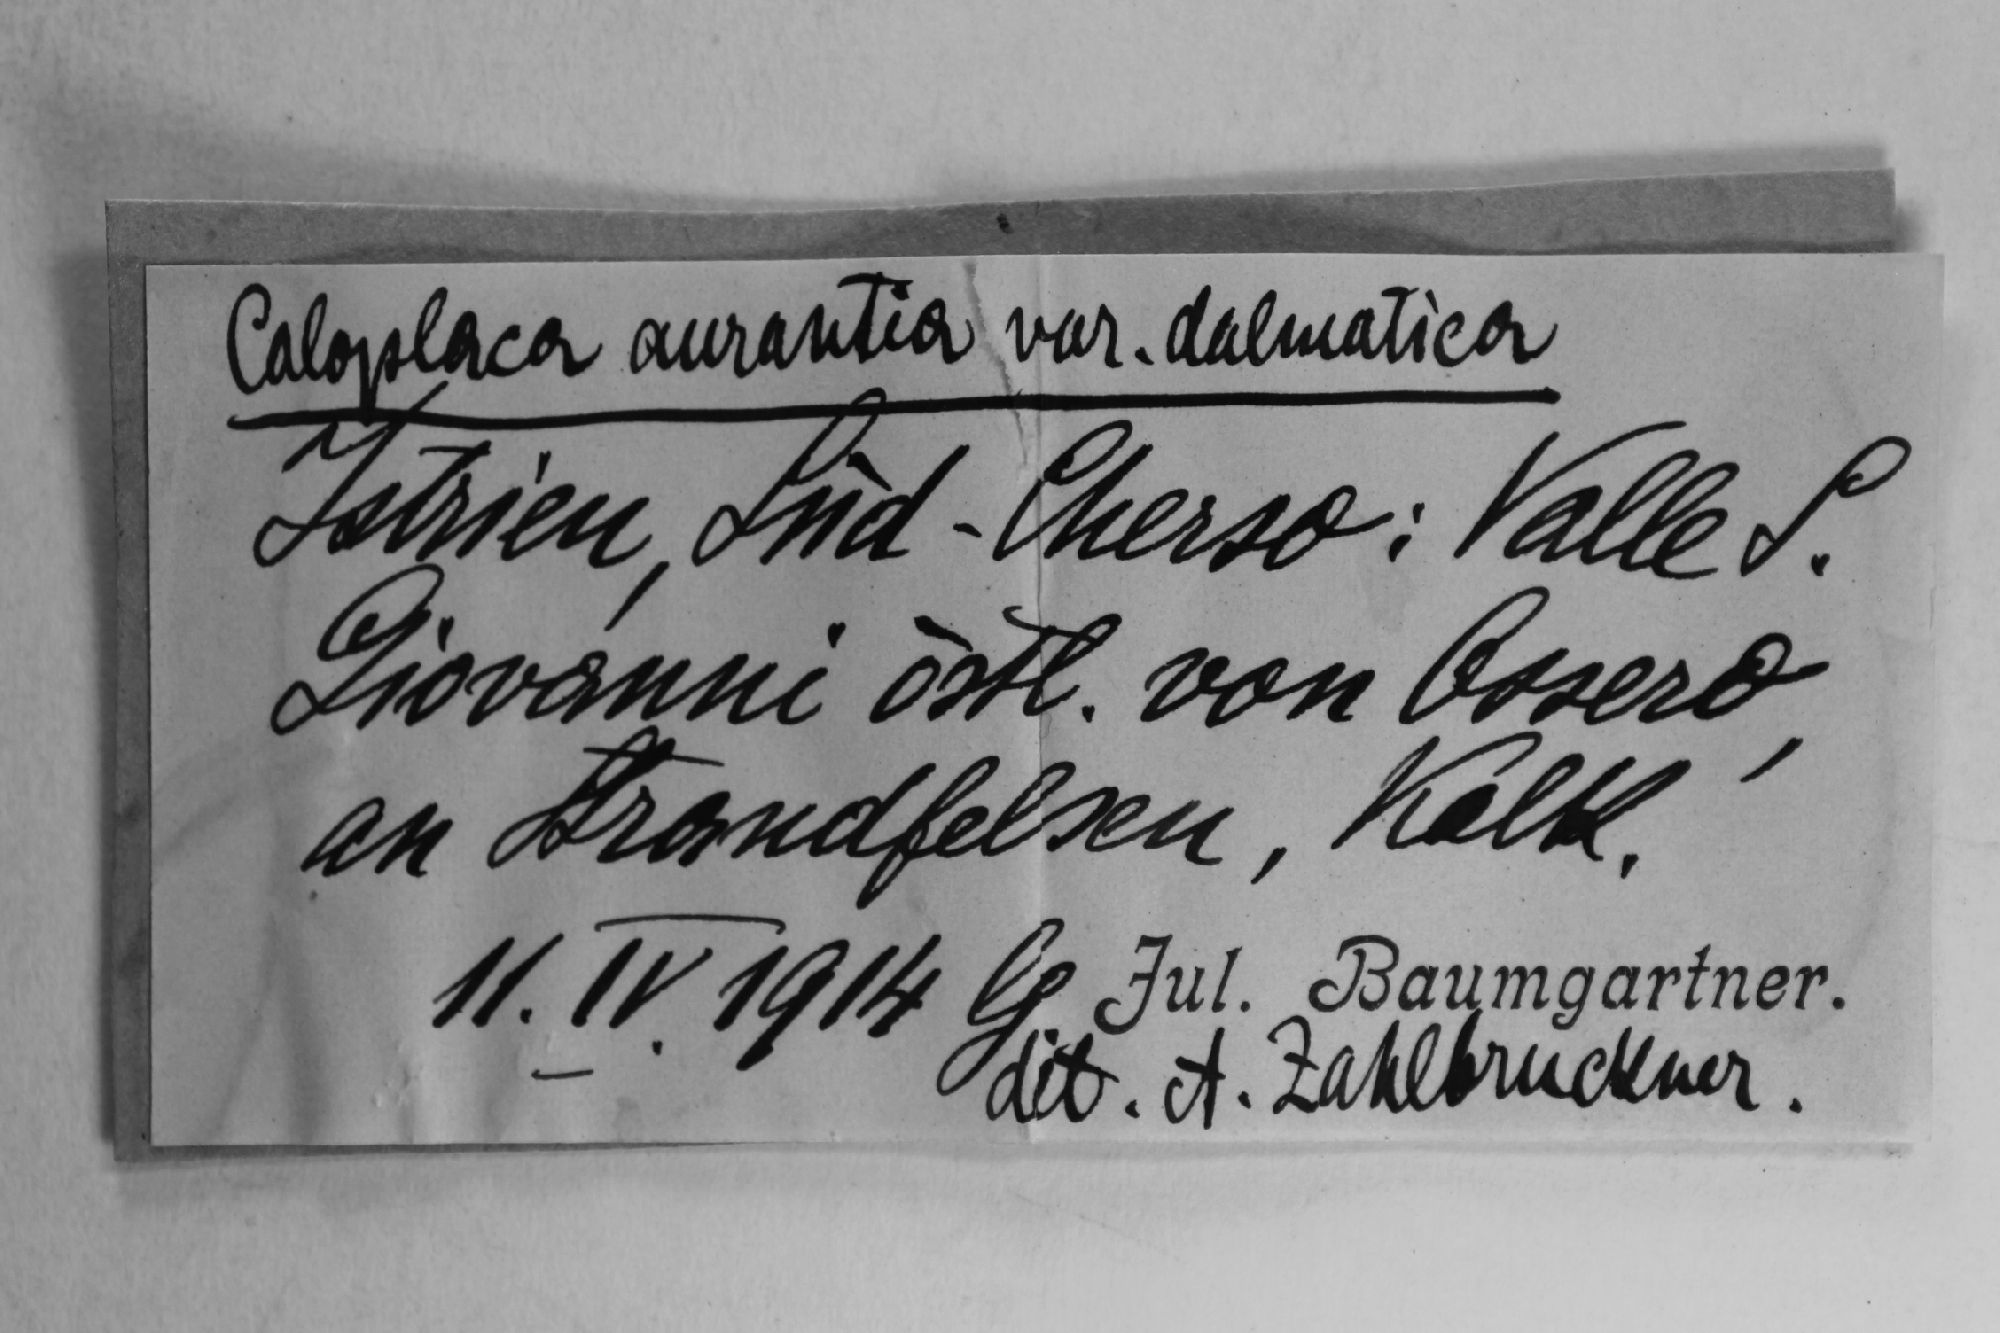 Caloplaca aurantia var. dalmatica
Istrien, Süd-Cherso: Valle S.
Giovanni östl. von Ossero,
an Strandfelsen, Kalk.
11. IV. 1914 lg Jul. Baumgartner.
det. A. Zahlbruckner.